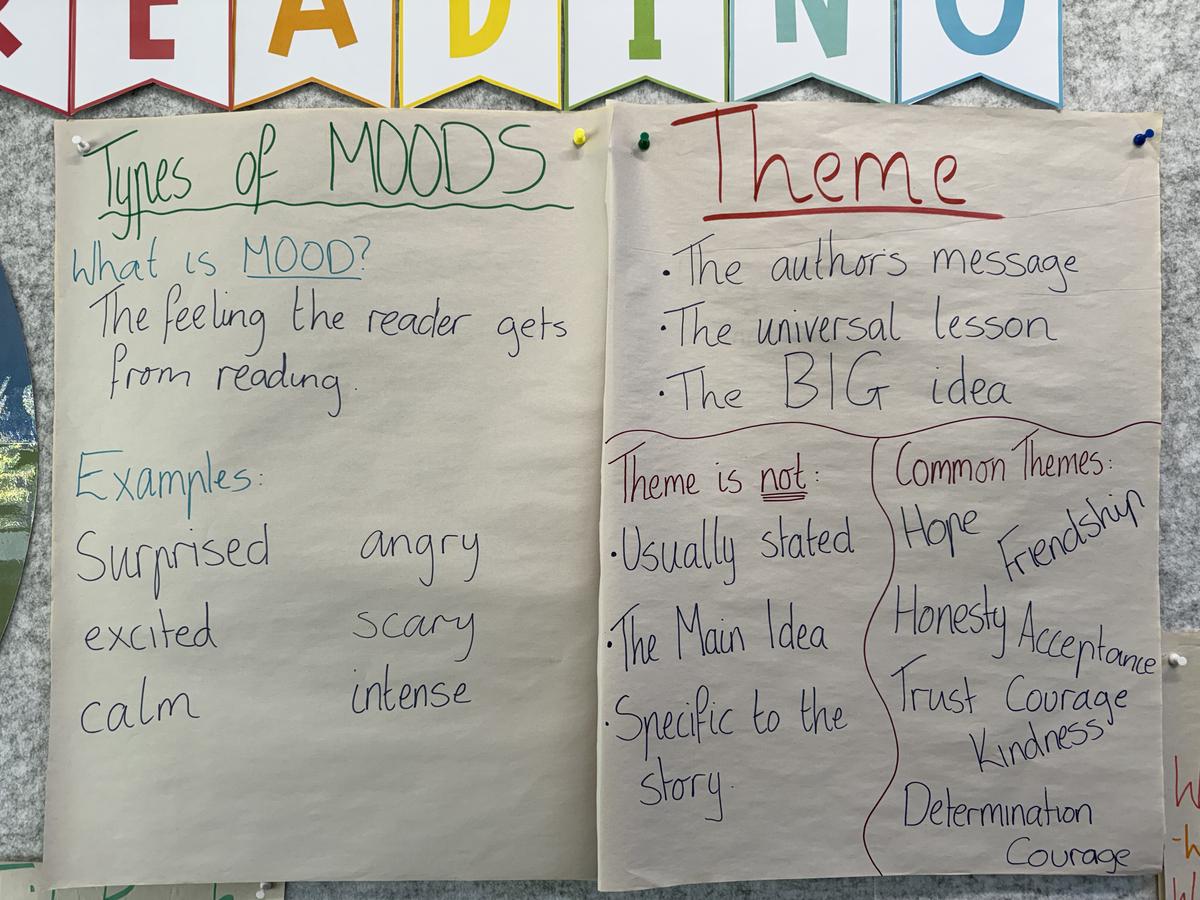 READING
Types of MOODS
What is MOOD?
The feeling the reader gets
from reading.
Examples:
Surprised angry
excited scary
calm intense
Theme
• The authors message
• The universal lesson
• The BIG idea
Theme is not:
• Usually stated
• The Main Idea
• Specific to the
story.
Common Themes:
Hope Friendship
Honesty Acceptance
Trust Courage
Kindness
Determination
Courage